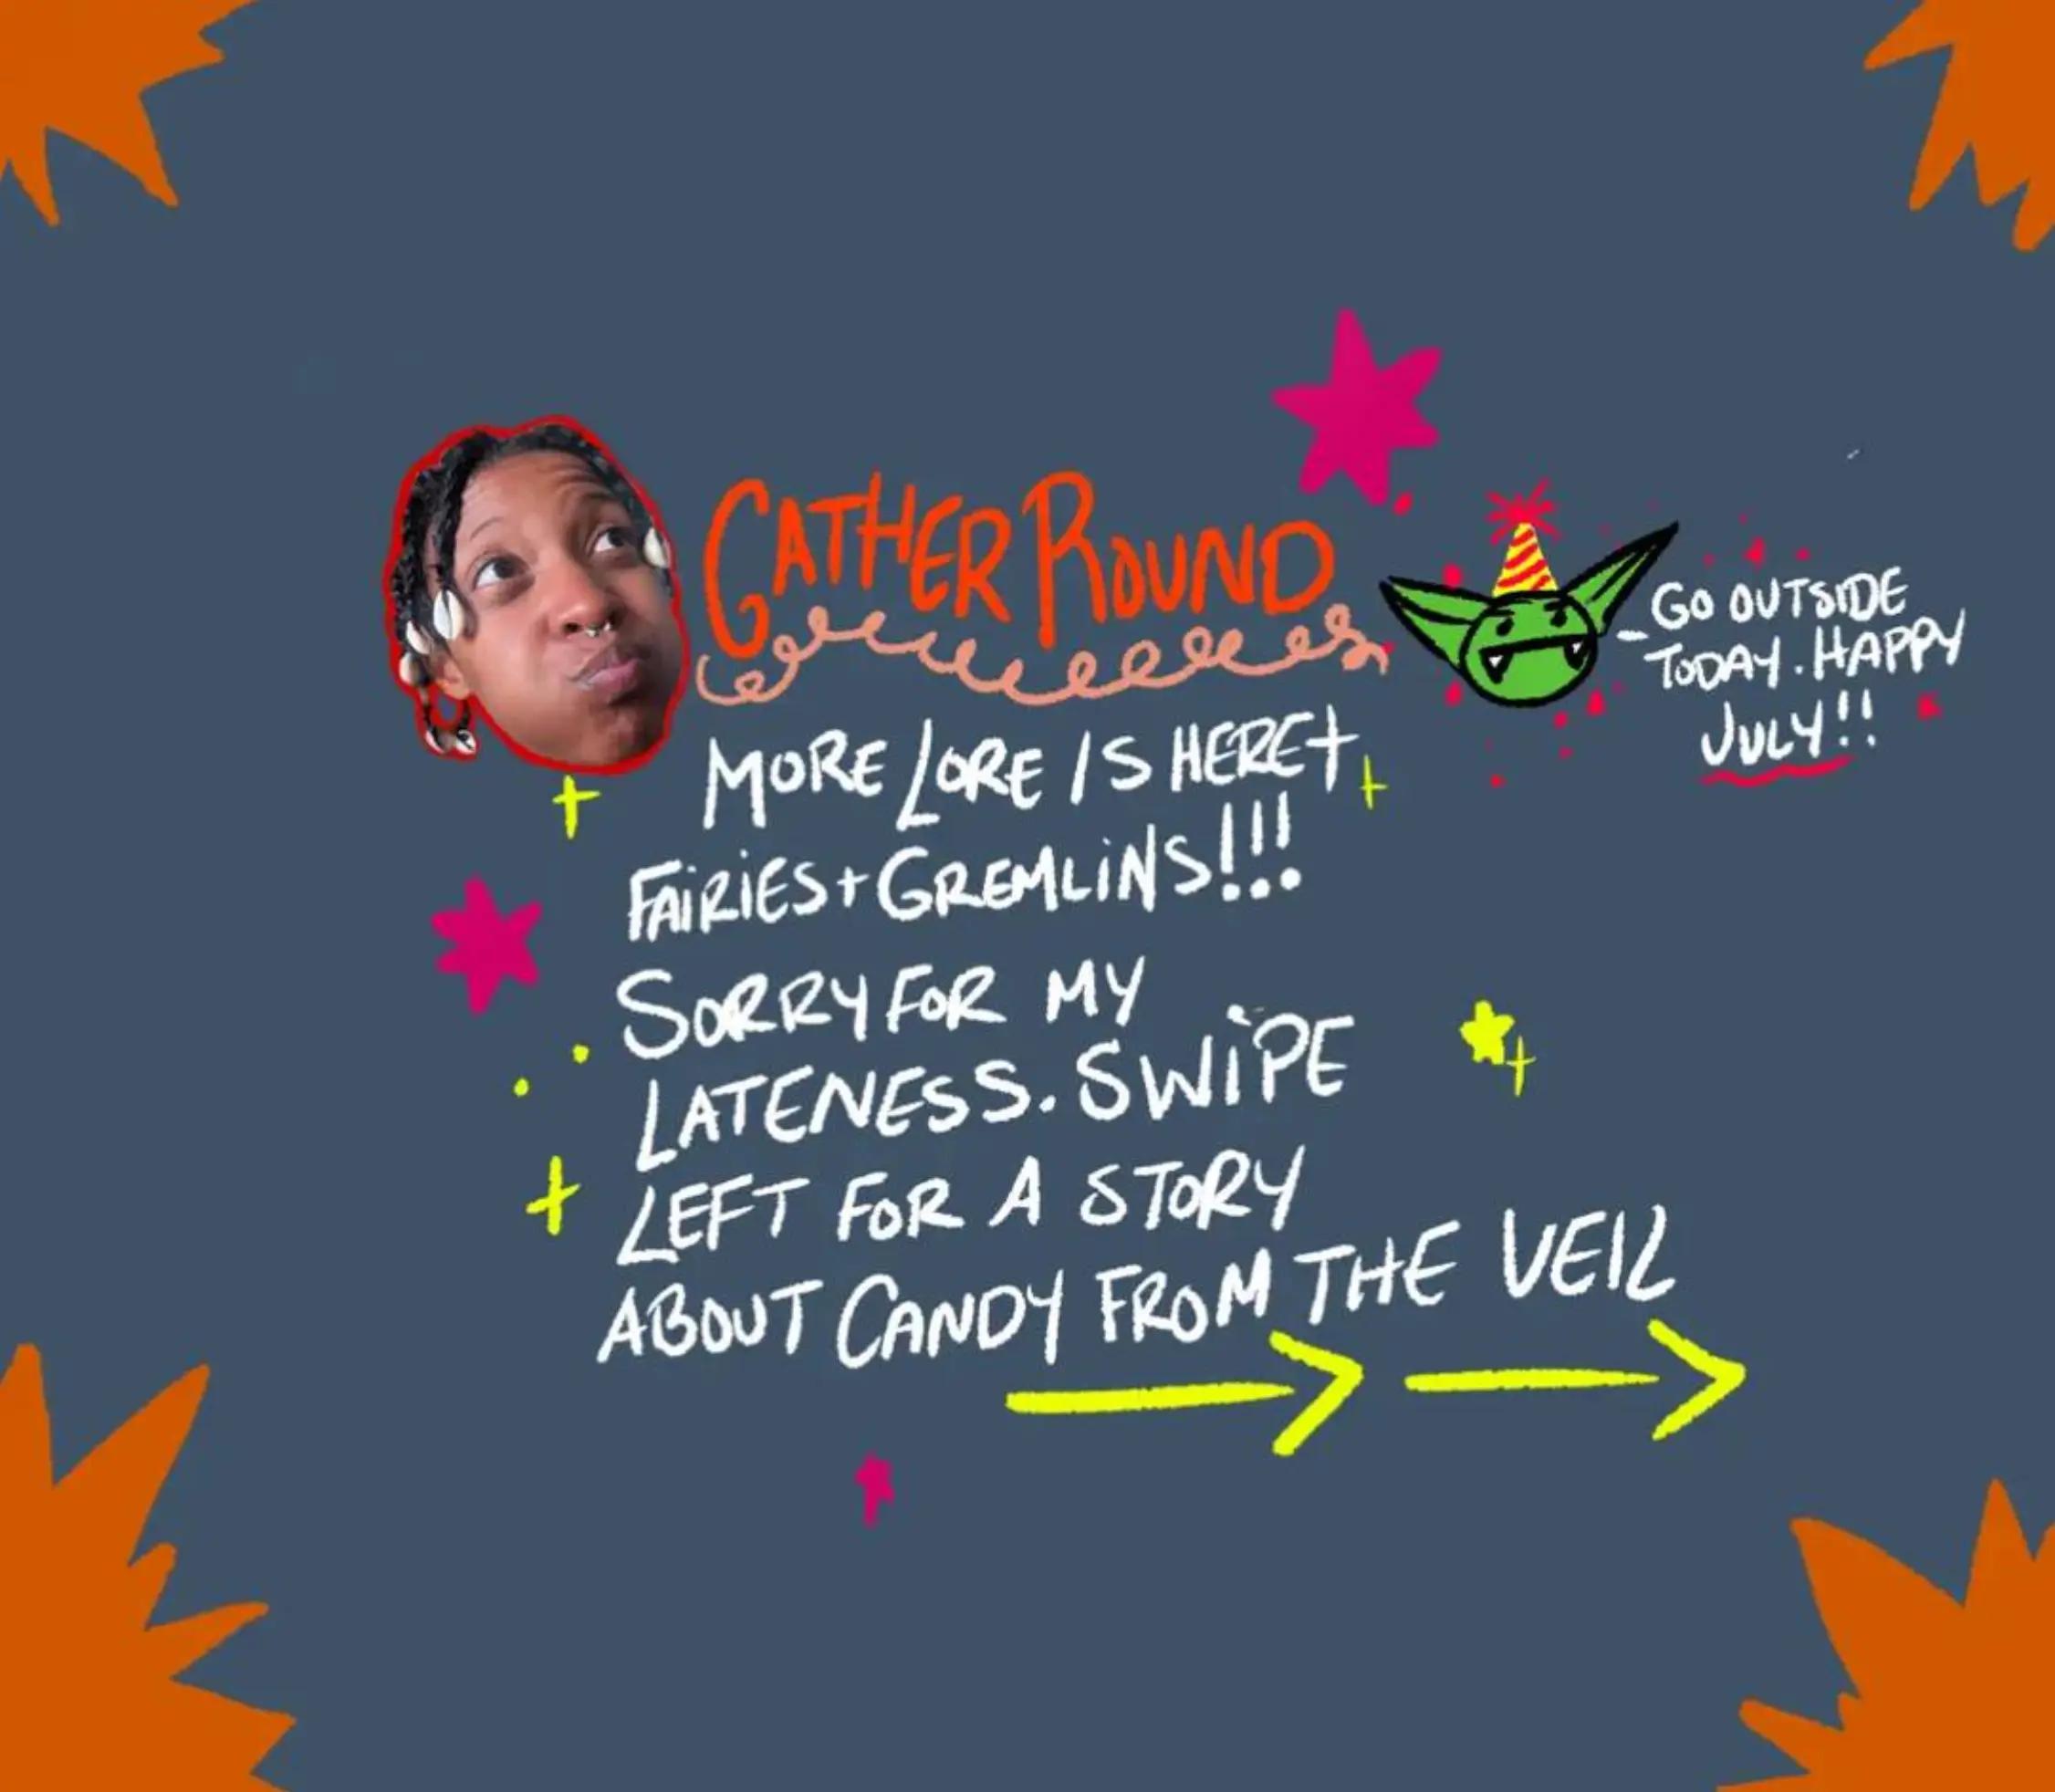 GATHER ROUND
MORE LORE IS HERE
FAIRIES + GREMLINS!!!
SORRY FOR MY
LATENESS. SWIPE
LEFT FOR A STORY
ABOUT CANDY FROM THE VEIL
- GO OUTSIDE
TODAY. HAPPY
JULY!!